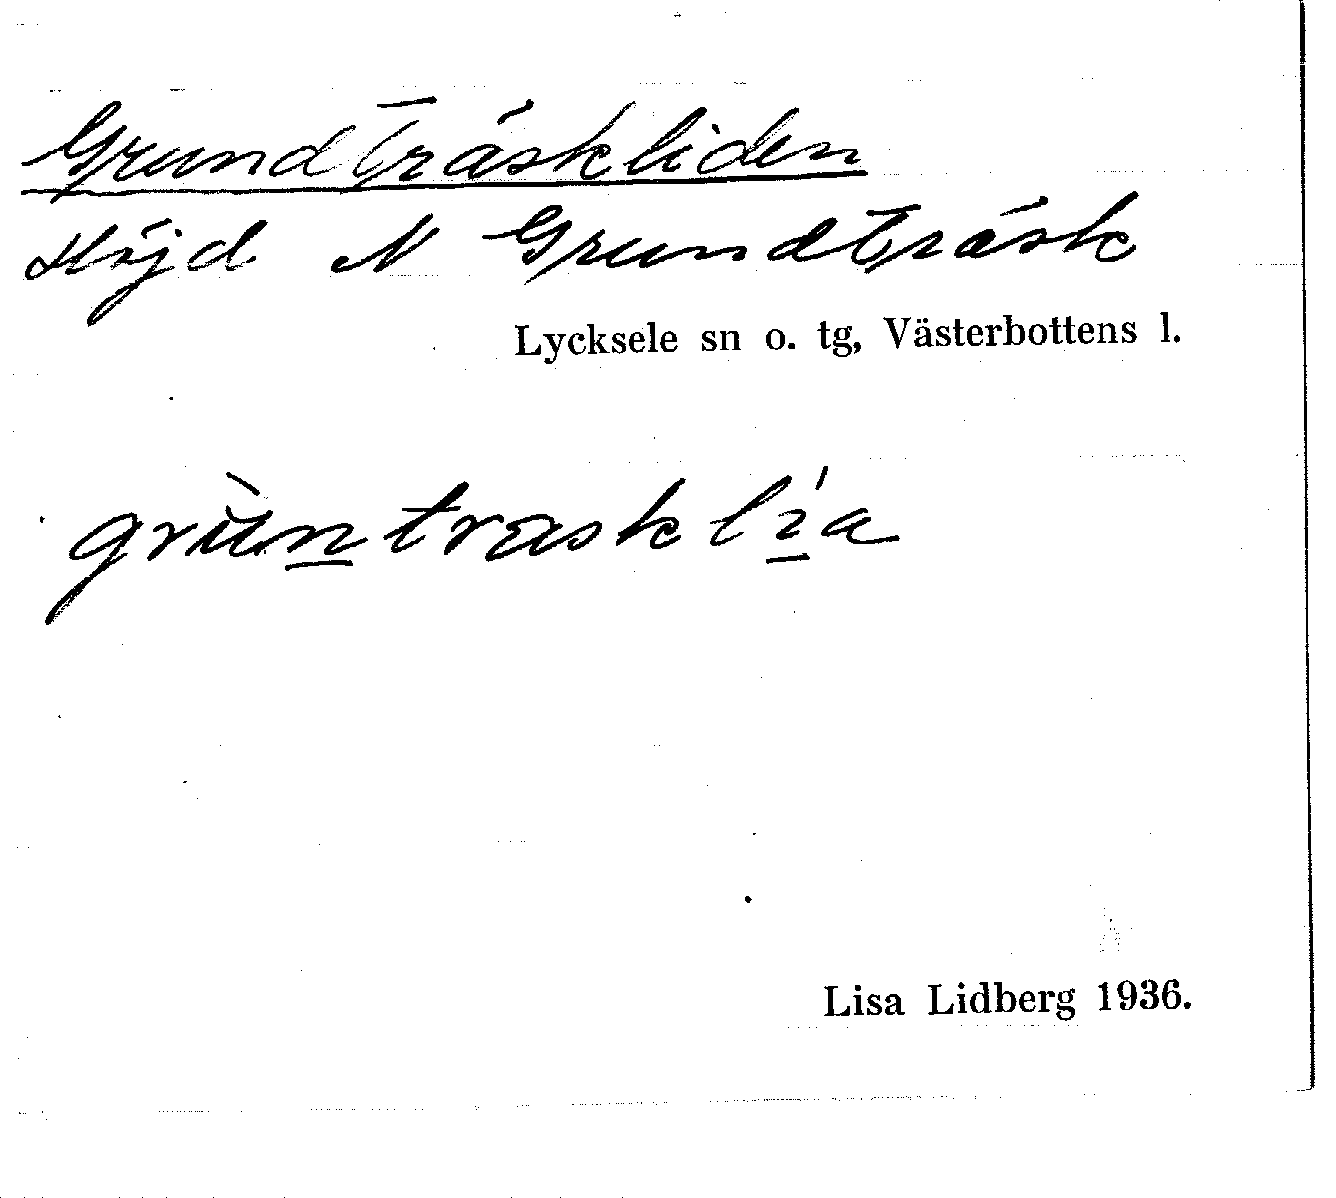 Grundträskliden
Höjd N Grundträsk
Lycksele sn o. tg, Västerbottens l.
grùntrasklia
Lisa Lidberg 1936.